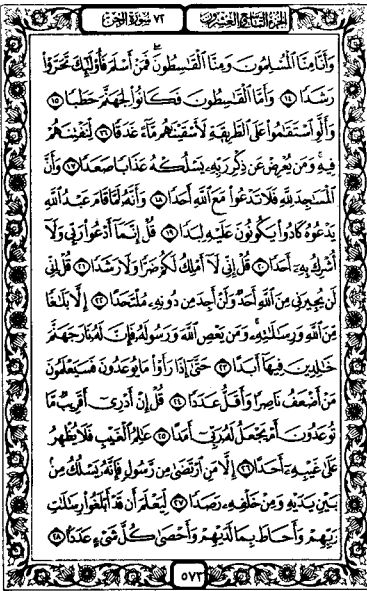 الجزء التاسع والعشرون ٧٢ سورة الجن
وَأَنَّا مِنَّا الْمُسْلِمُونَ وَمِنَّا الْقَاسِطُونَ فَمَنْ أَسْلَمَ فَأُولَٰئِكَ تَحَرَّوْا
رَشَدًا ١٤ وَأَمَّا الْقَاسِطُونَ فَكَانُوا لِجَهَنَّمَ حَطَبًا ١٥
وَأَلَّوِ اسْتَقَامُوا عَلَى الطَّرِيقَةِ لَأَسْقَيْنَاهُم مَّاءً غَدَقًا ١٦ لِّنَفْتِنَهُمْ
فِيهِ وَمَن يُعْرِضْ عَن ذِكْرِ رَبِّهِ يَسْلُكْهُ عَذَابًا صَعَدًا ١٧ وَأَنَّ
الْمَسَاجِدَ لِلَّهِ فَلَا تَدْعُوا مَعَ اللَّهِ أَحَدًا ١٨ وَأَنَّهُ لَمَّا قَامَ عَبْدُ اللَّهِ
يَدْعُوهُ كَادُوا يَكُونُونَ عَلَيْهِ لِبَدًا ١٩ قُلْ إِنَّمَا أَدْعُو رَبِّي وَلَا
أُشْرِكُ بِهِ أَحَدًا ٢٠ قُلْ إِنِّي لَا أَمْلِكُ لَكُمْ ضَرًّا وَلَا رَشَدًا ٢١ قُلْ إِنِّي
لَن يُجِيرَنِي مِنَ اللَّهِ أَحَدٌ وَلَنْ أَجِدَ مِن دُونِهِ مُلْتَحَدًا ٢٢ إِلَّا بَلَاغًا
مِّنَ اللَّهِ وَرِسَالَاتِهِ وَمَن يَعْصِ اللَّهَ وَرَسُولَهُ فَإِنَّ لَهُ نَارَ جَهَنَّمَ
خَالِدِينَ فِيهَا أَبَدًا ٢٣ حَتَّىٰ إِذَا رَأَوْا مَا يُوعَدُونَ فَسَيَعْلَمُونَ
مَنْ أَضْعَفُ نَاصِرًا وَأَقَلُّ عَدَدًا ٢٤ قُلْ إِنْ أَدْرِي أَقَرِيبٌ مَّا
تُوعَدُونَ أَمْ يَجْعَلُ لَهُ رَبِّي أَمَدًا ٢٥ عَالِمُ الْغَيْبِ فَلَا يُظْهِرُ
عَلَىٰ غَيْبِهِ أَحَدًا ٢٦ إِلَّا مَنِ ارْتَضَىٰ مِن رَّسُولٍ فَإِنَّهُ يَسْلُكُ مِن
بَيْنِ يَدَيْهِ وَمِنْ خَلْفِهِ رَصَدًا ٢٧ لِّيَعْلَمَ أَن قَدْ أَبْلَغُوا رِسَالَاتِ
رَبِّهِمْ وَأَحَاطَ بِمَا لَدَيْهِمْ وَأَحْصَىٰ كُلَّ شَيْءٍ عَدَدًا ٢٨
٥٧٣